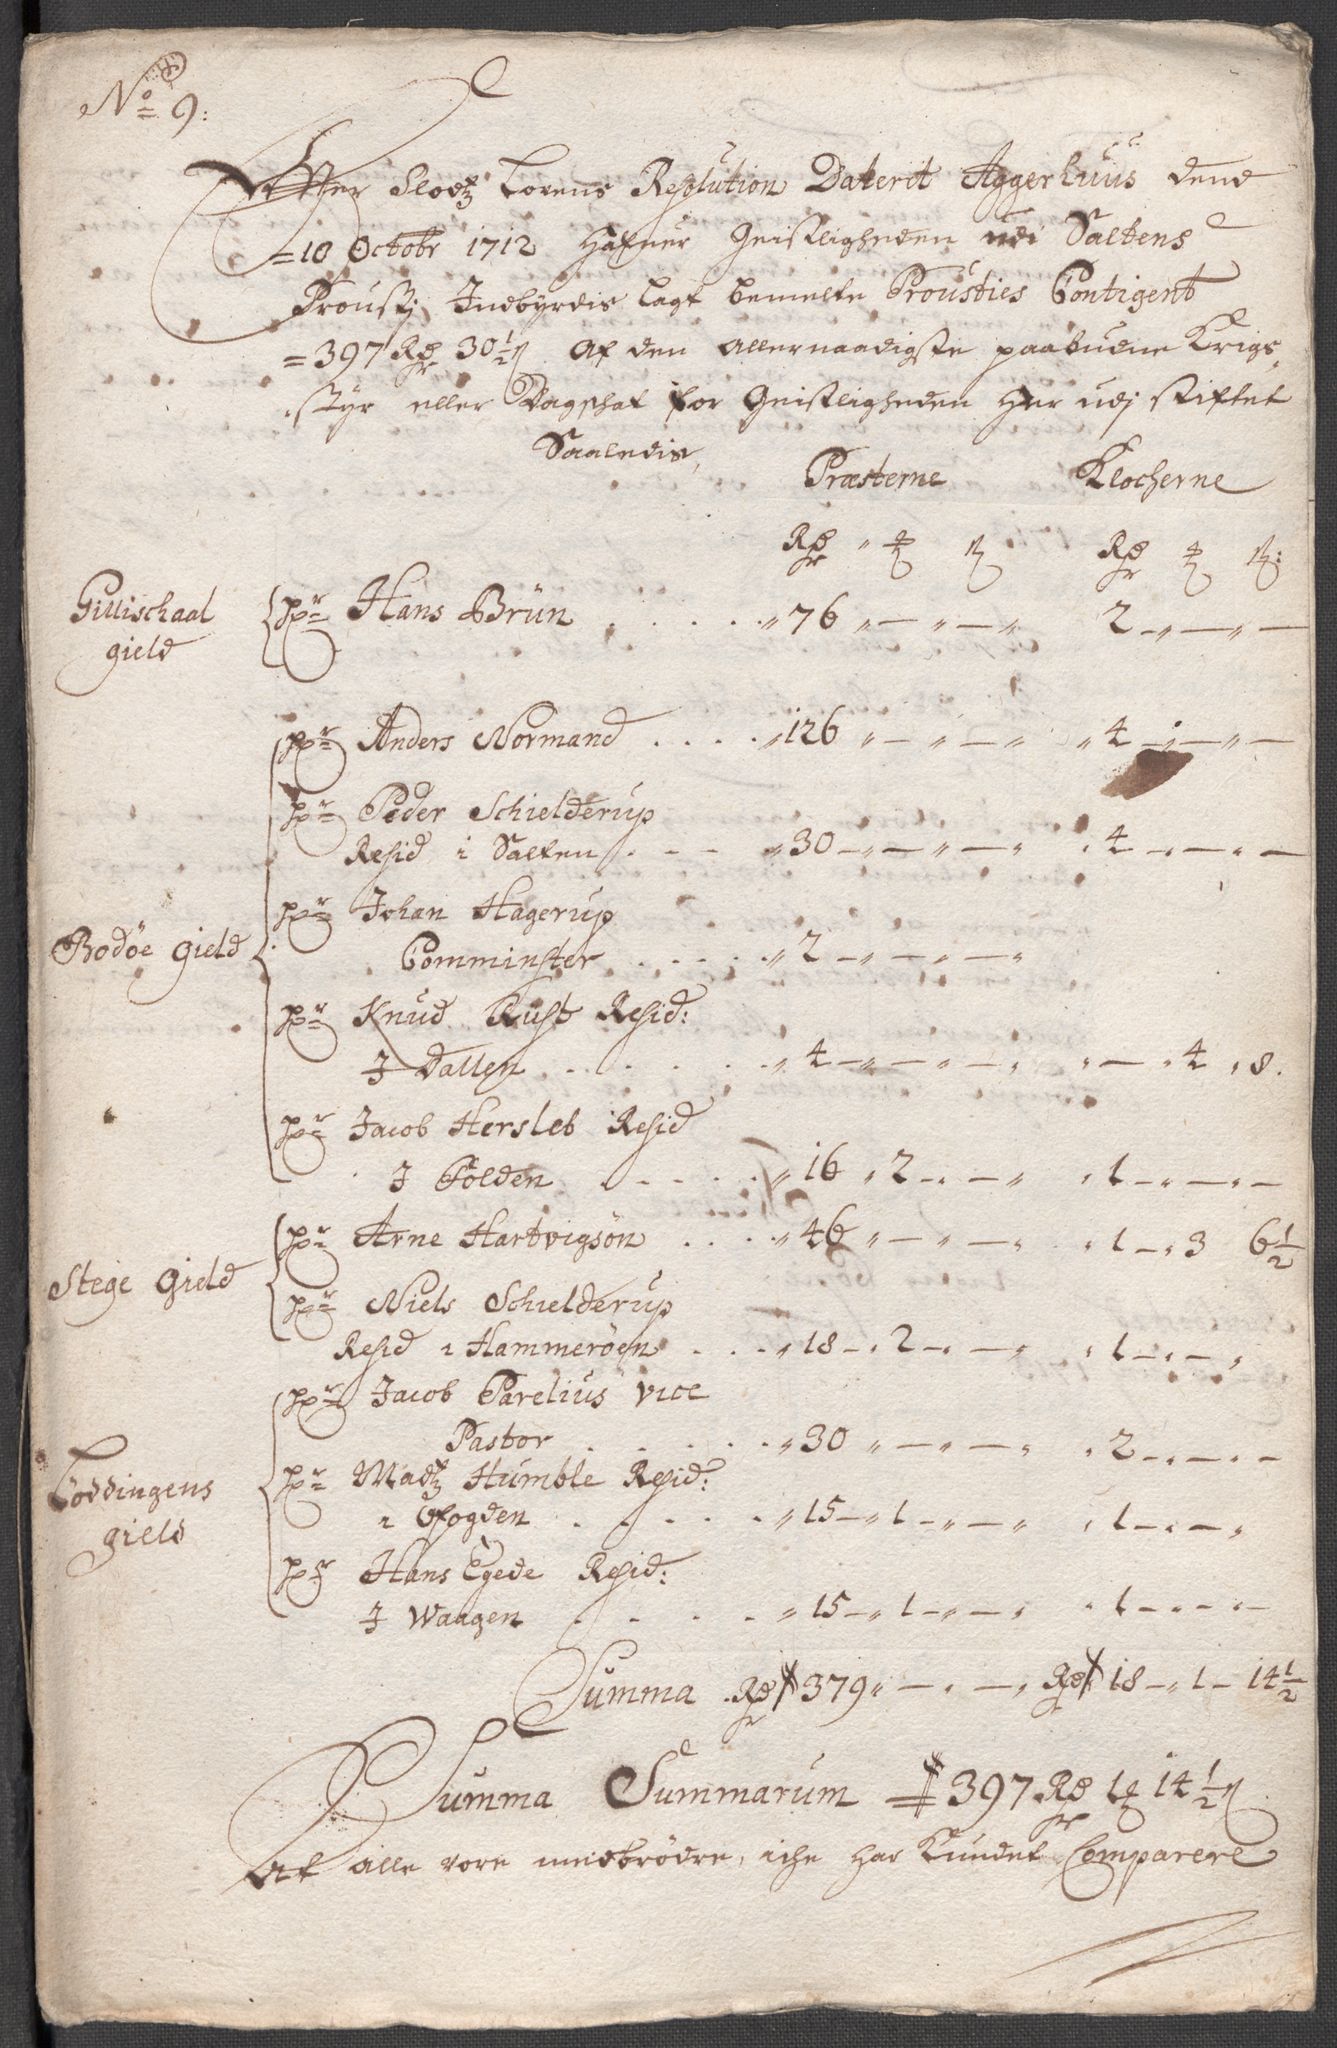 No 9:
Efter Slodtz Lovens Resolution Daterit Aggerhuus dend
=10 Octobr 1712 hafuer Geistligheden udi Saltens
Proustj Indbyrdis lagt bemelte Prousties Contigent
=397 Rdr 30½ß af den allernaadigste paabudne Krigs
styr eller Dagskat for Geistligheden her udj stiftet
Saaledis,
Præsterne Klocherne
Rdr " ₰ ß Rdr ₰ ß:
Gilischaal
gield
hr Hans Brün . . . . . " 76 " — " — " 2 — " — " —
hr Anders Normand . . . . " 126 " — " — " " 4 — " — " —
hr Peder Schielderup
Resid i Salten . . . " 30 — " — " — " 4 — " — " —
Bodøe Gield
hr Johan Hagerup
Comminster . . . . . " 2 — " — " —
hr Knud Rust Resid:
I Dallen . . . . . . " 4 — " — " — " " — " 4 " 8.
hr Jacob Hersleb Resid
I Folden . . . . . " 16 " 2 — " — " " 1 — " — " —
Stege Gield
hr Arne Hartvigsøn . . . . " 46 " — " — " " 1 — " 3 6½
hr Niels Schielderup
Resid i Hammerøen . . . " 18 — " 2 — " — " " 1 — " — "
Loddingens
gield
hr Jacob Parelius vice
Pastor . . . . . . " 30 " — " — " " 2 — " — " —
hr Madtz Humble Resid:
i Ofogden . . . . . " 15 — " 1 — " — " " 1 — " — "
hr Hans Egede Resid:
I Waagen . . . . " 15 — " 1 — " — " " 1 — " — " —
Summa Rdr 379 " — " — " Rdr 18 — " 1 — 14½
Summa Summarum 397 Rdr 1 ₰ 14½ß
Af alle vore medbrødre, iche har Kundet Comparere